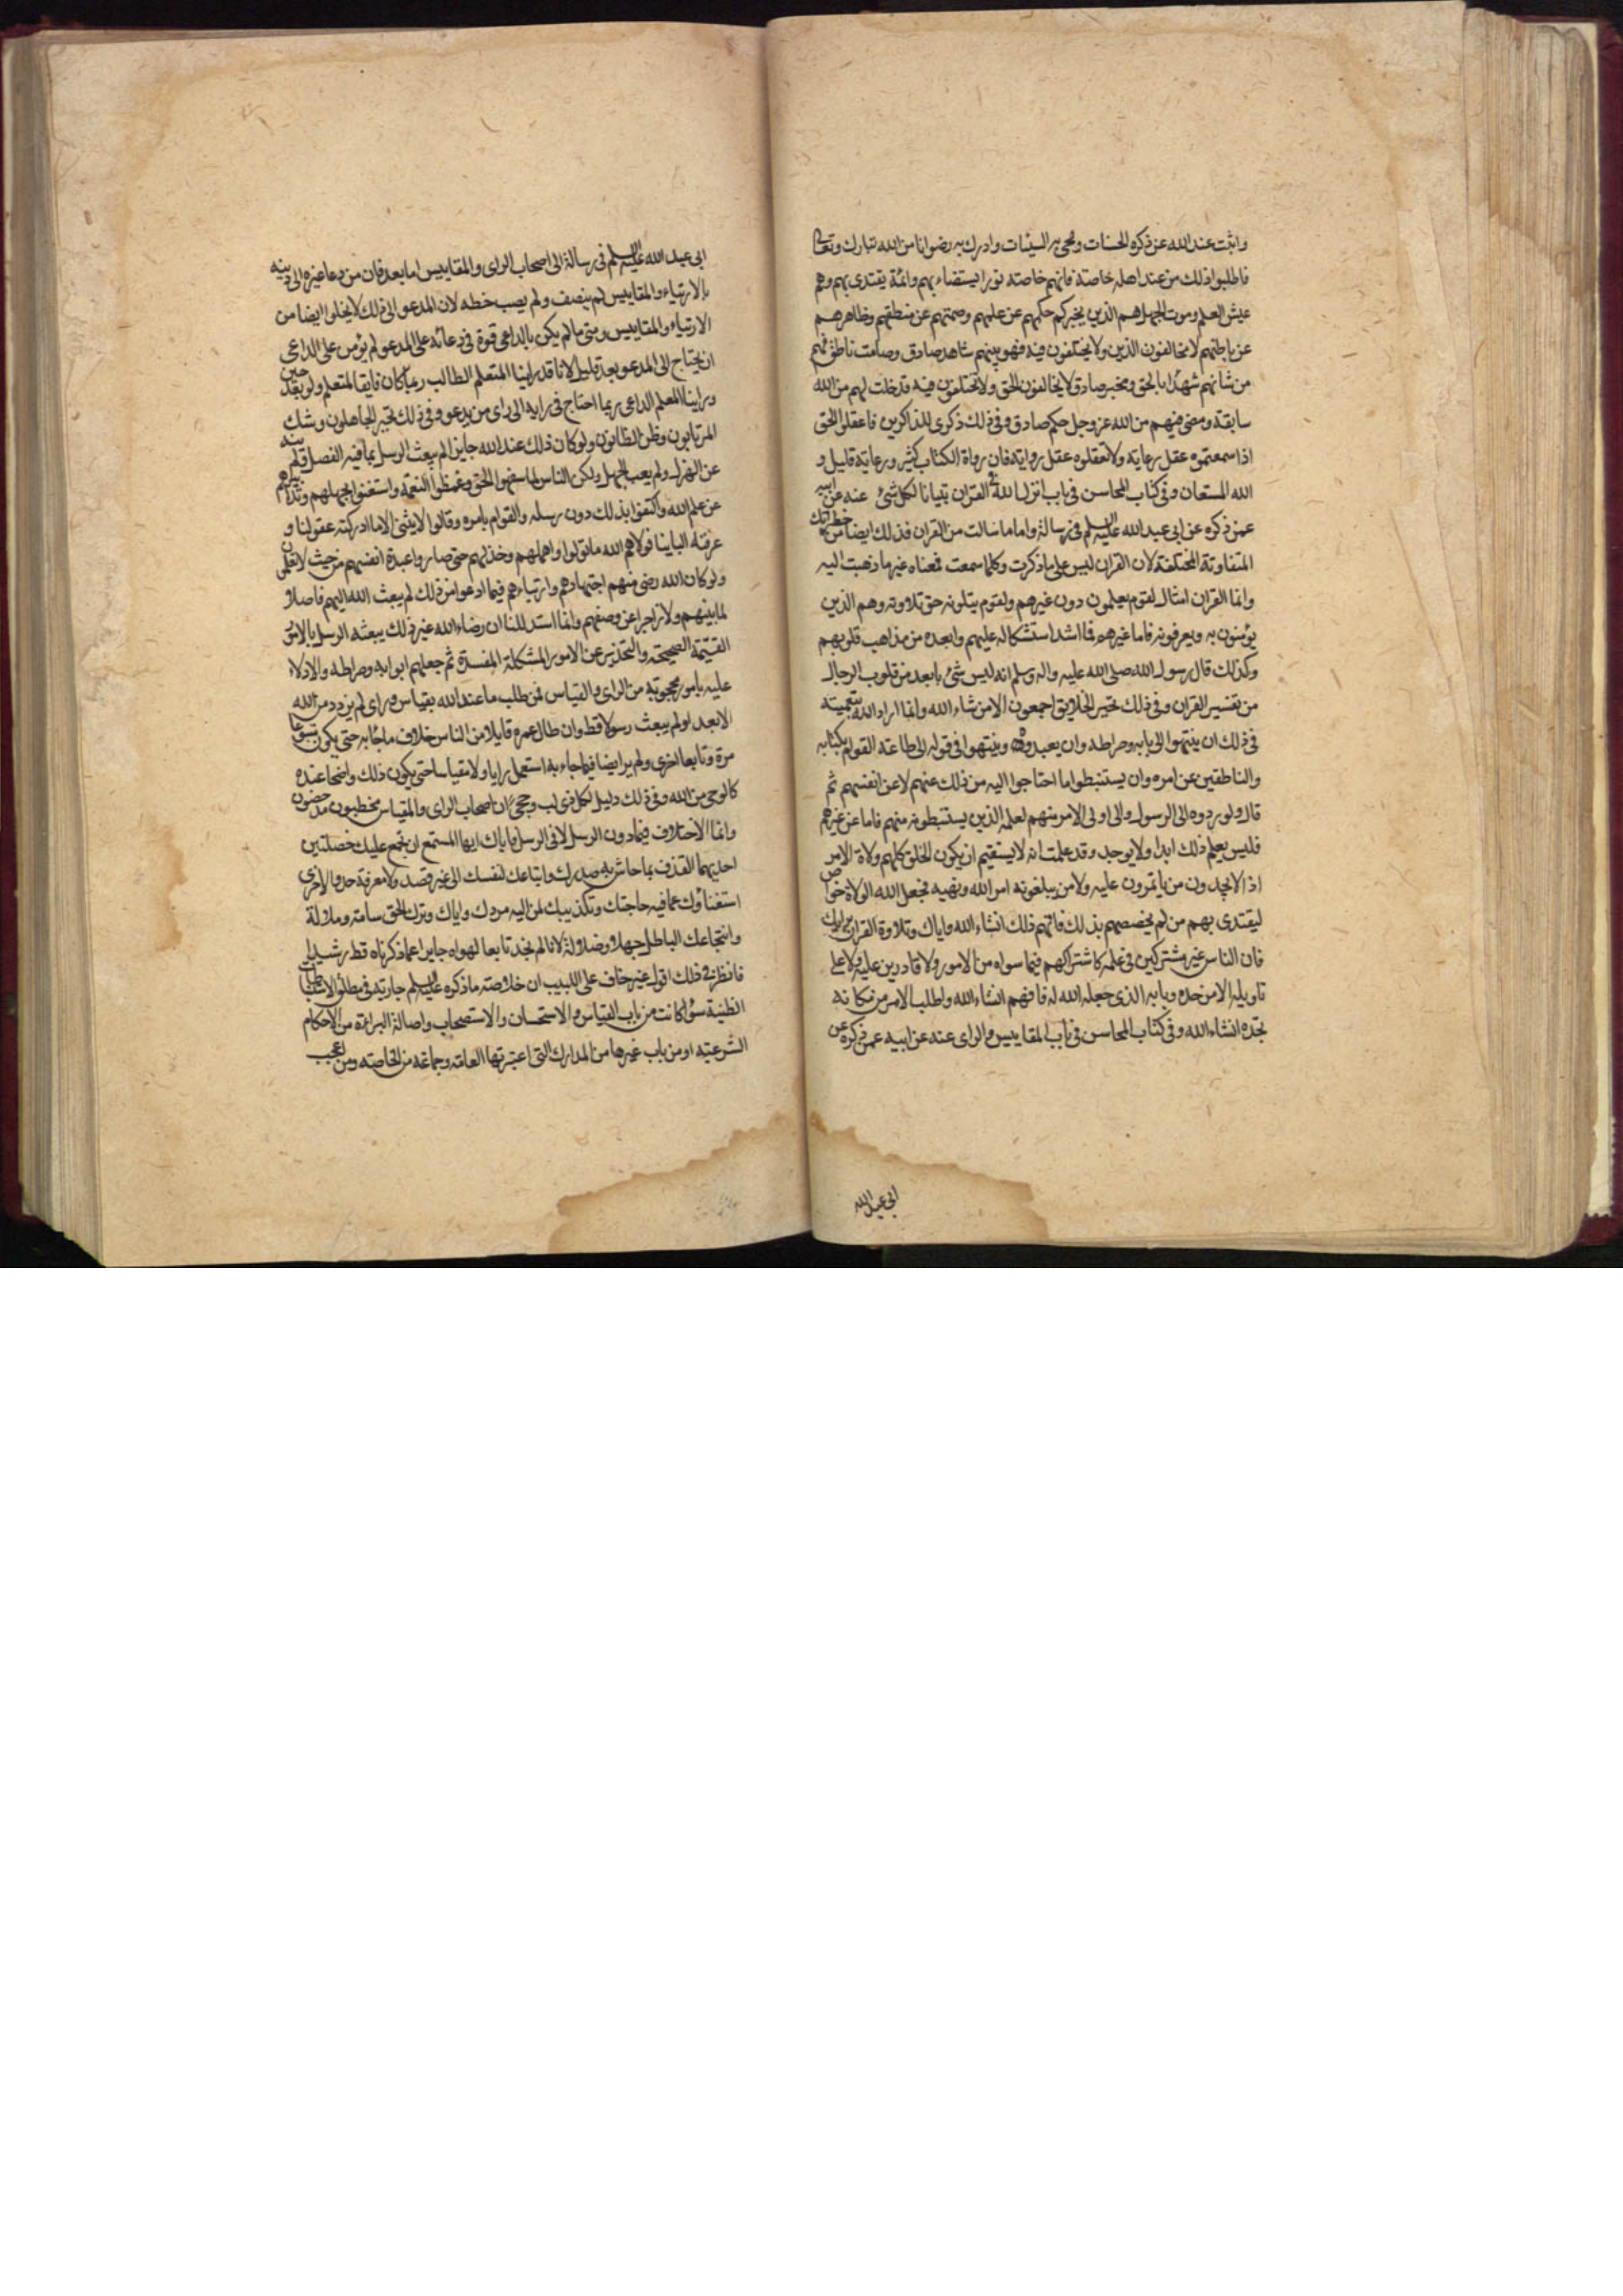 واثبت عند الله عز ذكره الحسنات ومحى به السيئات وادرك به رضوانا من الله تبارك وتعالى
فاطلبوا ذلك من عند اهله خاصة فانهم خاصة نورا يستضاء بهم وائمة يقتدى بهم وهم
عيش العلم وموت الجهل هم الذين يخبركم حكمهم عن علمهم وصمتهم عن منطقهم وظاهرهم
عن باطنهم لا يخالفون الدين ولا يختلفون فيه فهو بينهم شاهد صادق وصامت ناطق فهم
من شانهم شهداء بالحق ومخبر صادق لا يخالفون الحق ولا يختلفون فيه قد خلت لهم من الله
سابقة ومضى فيهم من الله عز وجل حكم صادق وفي ذلك ذكرى للذاكرين فاعقلوا الحق
اذا سمعتموه عقل رعاية ولا تعقلوه عقل رواية فان رواة الكتاب كثير ورعاته قليل و
الله المستعان وفي كتاب المحاسن في باب انزل الله في القران تبيانا لكل شئ عنه عن ابيه
عمن ذكره عن ابي عبد الله عليه السلم في رسالة واما ما سالت من القران فذلك ايضا من خطراتك
المتفاوتة المختلفة لان القران ليس على ما ذكرت وكلما سمعت فمعناه غير ما ذهبت اليه
وانما القران امثال لقوم يعلمون دون غيرهم ولقوم يتلونه حق تلاوته وهم الذين
يؤمنون به ويعرفونه فاما غيرهم فما اشد استشكاله عليهم وابعده من مذاهب قلوبهم
وكذلك قال رسول الله صلى الله عليه واله وسلم انه ليس شئ بابعد من قلوب الرجال
من تفسير القران وفي ذلك تحير الخلايق اجمعون الا من شاء الله وانما اراد الله بتعميته
في ذلك ان ينتهوا الى بابه وصراطه وان يعبدوه وينتهوا في قوله الى طاعة القوام بكتابه
والناطقين عن امره وان يستنبطوا ما احتاجوا اليه من ذلك عنهم لا عن انفسهم ثم
قال ولو ردوه الى الرسول والى اولى الامر منهم لعلمه الذين يستنبطونه منهم فاما عن غيرهم
فليس يعلم ذلك ابدا ولا يوجد وقد علمت انه لا يستقيم ان يكون الخلق كلهم ولاة الامر
اذ لا يجدون من ياتمرون عليه ولا من يبلغونه امر الله ونهيه فجعل الله الولاة خواص
ليقتدى بهم من لم يخصصهم بذلك فافهم ذلك انشاء الله واياك وتلاوة القران برايك
فان الناس غير مشتركين في علمه كاشتراكهم فيما سواه من الامور ولا قادرين عليه ولا على
تاويله الا من حده وبابه الذي جعله الله له فافهم انشاء الله واطلب الامر من مكانه
تجده انشاء الله وفي كتاب المحاسن في باب المقاييس والراى عنه عن ابيه عمن ذكره عن
ابي عبد الله
ابى عبد الله عليه السلم في رسالة الى اصحاب الراى والمقاييس اما بعد فان من دعا غيره الى دينه
بالارتياء والمقاييس لم ينصف ولم يصب حظه لان المدعو الى ذلك لا يخلوا ايضا من
الارتياء والمقاييس ومتى ما لم يكن بالداعي قوة في دعائه على المدعو لم يؤمن على الداعي
ان يحتاج الى المدعو بعد قليل لانا قد راينا المتعلم الطالب ربما كان فايقا لمتعلم ولو بعد حين
وراينا المعلم الداعي ربما احتاج في رايه الى راى من يدعو وفي ذلك تحير الجاهلون وشك
المرتابون وظن الظانون ولو كان ذلك عند الله جايز لم يبعث الرسل بما فيه الفصل ولم ينه
عن الهزل ولم يعب الجهل ولكن الناس لما سفهوا الحق وغمطوا النعمة واستغنوا بجهلهم وتدابيرهم
عن علم الله واكتفوا بذلك دون رسله والقوام بامره وقالوا لا شئ الا ما ادركته عقولنا و
عرفته البابنا فولاهم الله ما تولوا واهملهم وخذلهم حتى صاروا عبدة انفسهم من حيث لا يعلمون
ولو كان الله رضى منهم اجتهادهم وارتياءهم فيما ادعوا من ذلك لم يبعث الله اليهم فاصلا
لما بينهم ولا زاجرا عن وصفهم وانما استدللنا ان رضاء الله غير ذلك يبعثه الرسل بالامور
القيمة الصحيحة والتحذير عن الامور المشكلة المفسدة ثم جعلهم ابوابه وصراطه والادلاء
عليه بامور محجوبة من الراى والقياس فمن طلب ما عند الله بقياس وراى لم يزدد من الله
الا بعدا ولم يبعث رسولا قط وان طال عمره قايلا من الناس خلاف ما جاء به حتى يكون متبوعا
مرة وتابعا اخرى ولم ير ايضا فيما جاء به استعمل رايا ولا مقياسا حتى يكون ذلك واضحا عنده
كالوحي من الله وفي ذلك دليل لكل ذي لب وحجى ان اصحاب الراى والقياس مخطئون مدحضون
وانما الاختلاف فيما دون الرسل لا في الرسل فاياك ايها المستمع ان تجمع عليك خصلتين
احديهما القذف بما جاش به صدرك واتباعك لنفسك الى غير قصد ولا معرفة حد والاخرى
استغناؤك عما فيه حاجتك وتكذيبك لمن اليه مردك واياك وترك الحق سامة وملالة
وانتجاعك الباطل جهلا وضلالة لانا لم نجد تابعا لهواه جايزا عما ذكرناه قط رشيدا
فانظر في ذلك اقول غير خاف على اللبيب ان خلاصة ما ذكره عليه السلم جارية في مطلق الاستنباطات
الظنية سواء كانت من باب القياس والاستحسان والاستصحاب واصالة البراءة من الاحكام
الشرعية او من باب غيرها من المدارك التي اعتبرتها العامة وجماعة من الخاصة ومن العجب